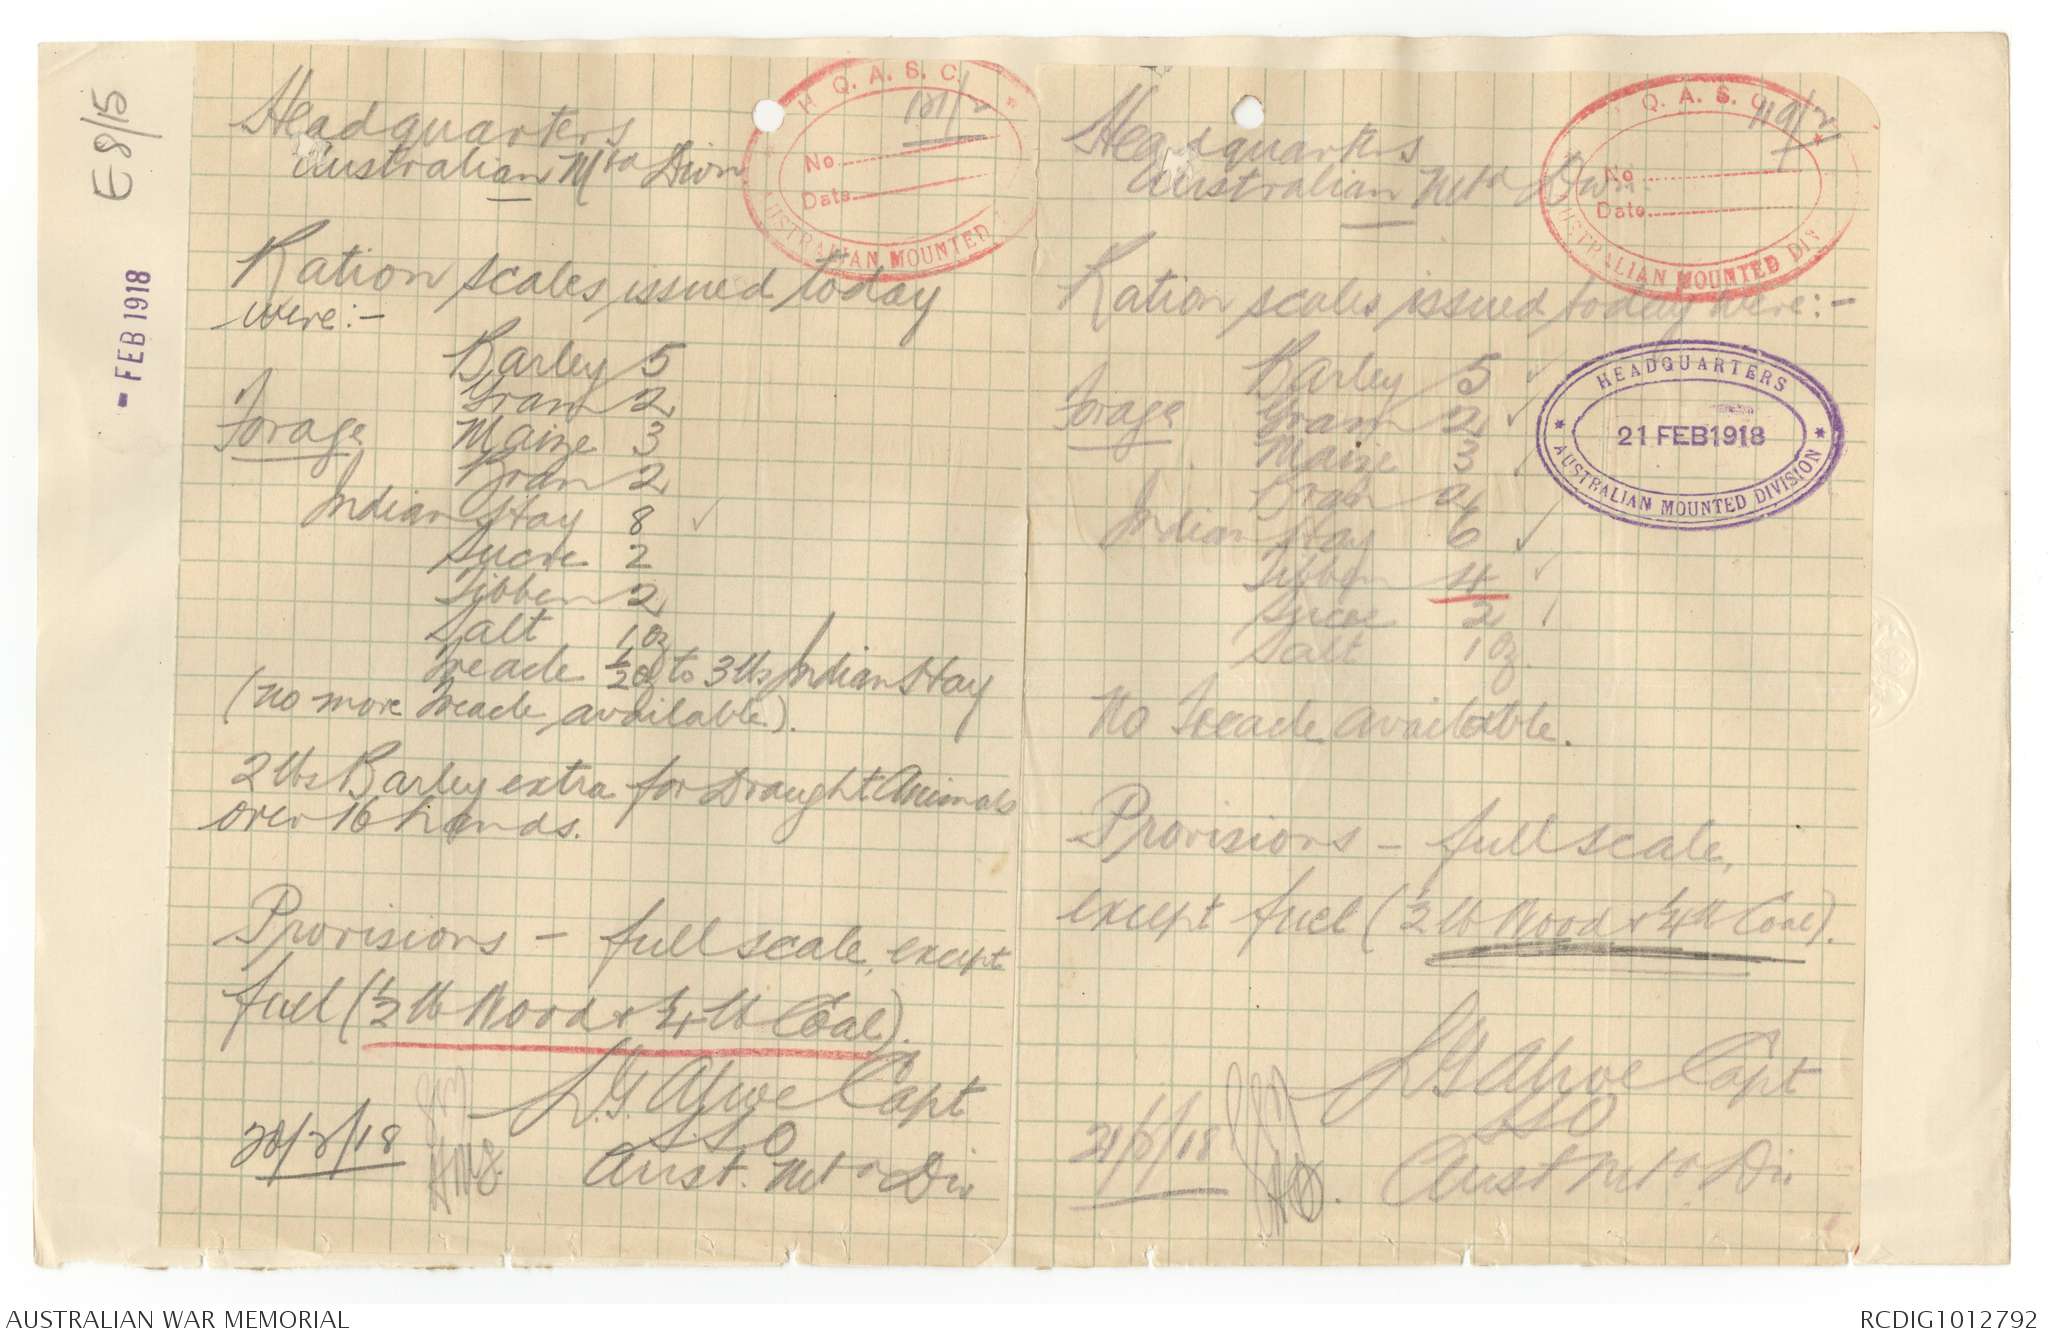 E8/15
- FEB 1918
H. Q. A. S. C.
121/2
No
Date
AUSTRALIAN MOUNTED
Headquarters
Australian Mtd Divn
Ration scales issued today
were:-
Barley 5
Gram 2
Forage Maize 3
Bran 2
Indian Hay 8 ✓
Sucre 2
Tibben 2
Salt 1 oz
Treacle ½ oz to 3 lbs Indian Hay
(no more Treacle available).
2 lbs Barley extra for Draught Animals
over 16 hands.
Provisions - full scale, except
fuel (½ lb Wood & ¼ lb Coal).
Capt
S.S.O
Aust. Mtd Div
20/2/18
Q. A. S. C.
119/2
No
Date
AUSTRALIAN MOUNTED DIV
Headquarters
Australian Mtd Divn.
Ration scales issued today were:-
Barley 5 ✓
Forage Gram 2 ✓
Maize 3 ✓
Bran 2
Indian Hay 6 ✓
Tibben 4 ✓
Sucre 2
Salt 1 oz.
HEADQUARTERS
21 FEB 1918
AUSTRALIAN MOUNTED DIVISION
No Treacle available.
Provisions - full scale,
except fuel (½ lb Wood & ¼ lb Coal).
Capt
SSO
Aust Mtd Div
21/2/18
AUSTRALIAN WAR MEMORIAL
RCDIG1012792